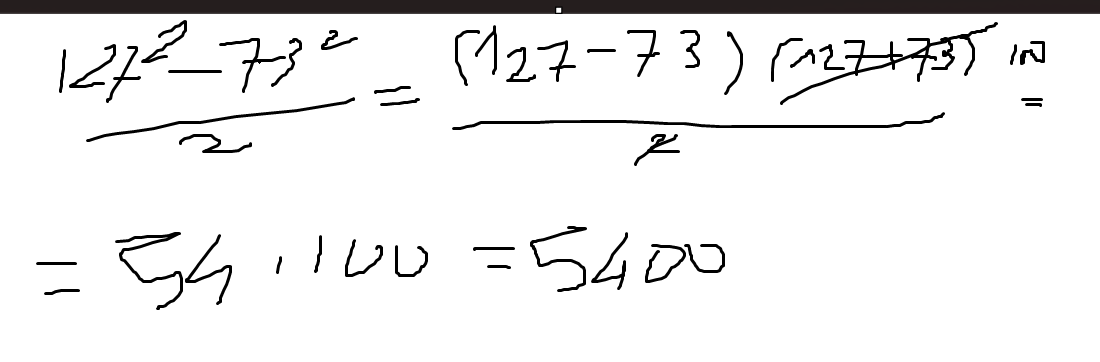 127² - 73² / 2 = (127 - 73) (127 + 73) / 2 =
= 54 . 100 = 5400